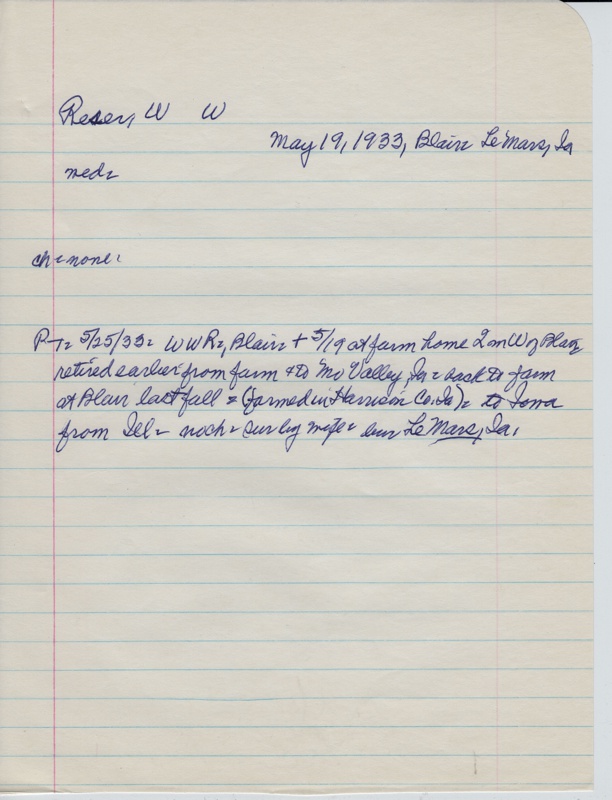 Reser, W W
May 19, 1933, Blair= LeMars, Ia
med=
ch=none=
P-T= 5/25/33= W W R=, Blair= + 5/19 at farm home 2 m W of Blair
retired earlier from farm & to Mo Valley, Ia= back to farm
at Blair last fall = (farmed in Harrison Co. Ia)= to Iowa
from Ill= noch= sur by wife= bur LeMars, Ia.